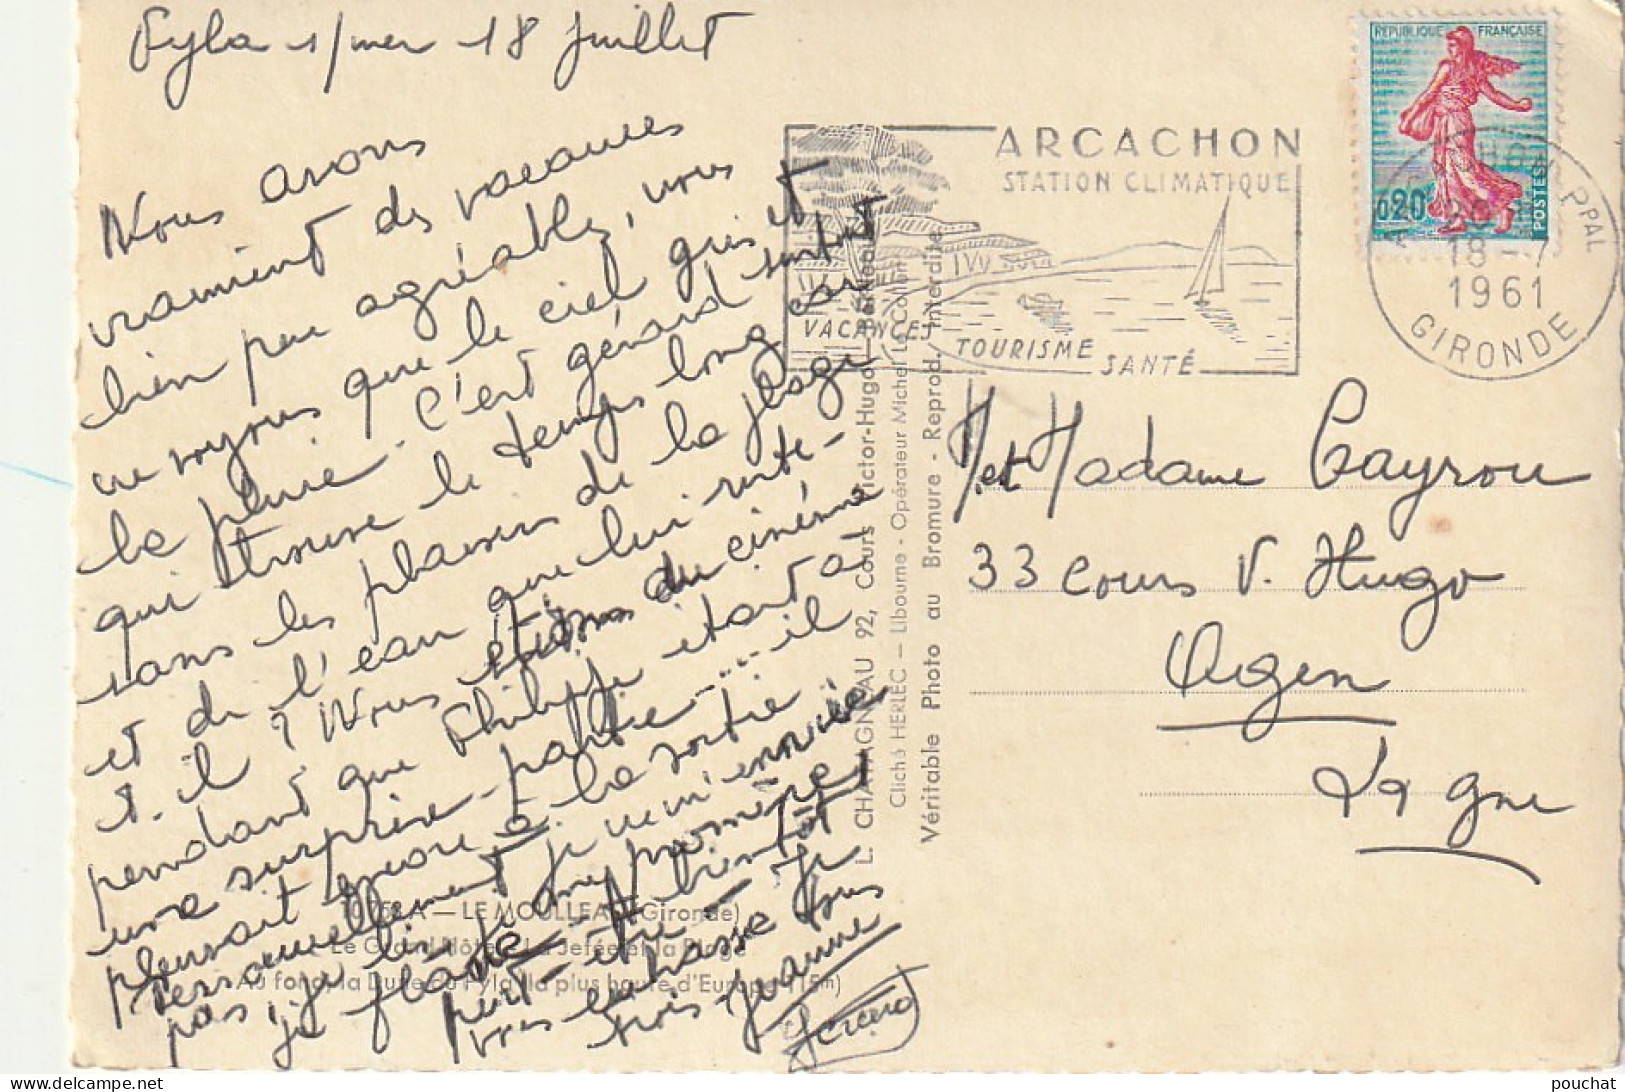 Pyla s/mer 18 Juillet
Nous avons
vraiment des vacances
bien peu agréables, nous
ne voyons que le ciel gris et
la pluie. C'est gérard surtout
qui trouve le temps long car
sans les plaisirs de la plage
et de l'eau que lui reste-
t-il ? Nous étions du cinéma
pendant que Philippe étant à
une surprise-partie .... il
pleuvait encore à la sortie
Personnellement je ne m'ennuie
pas, je lis, je me promène,
je flâne - A bientôt
peut-être - Je
vous embrasse tous
trois Jeanne
Gérard
REPUBLIQUE FRANÇAISE
0,20
POSTES
ARCACHON
STATION CLIMATIQUE
VACANCES
TOURISME
SANTÉ
PPAL
18 -7
1961
GIRONDE
M. et Madame Cayrou
33 Cours V. Hugo
Agen
L. CHATAGNEAU 92, Cours Victor-Hugo - Bordeaux
Cliché HERLEC - Libourne - Opérateur Michel Le Collen
Véritable Photo au Bromure - Reprod. Interdite
A - LE MOULLEAU (Gironde)
Le Grand Hôtel, La Jetée et la Plage
Au fond, la Dune du Pyla, la plus haute d'Europe (115m)
pouchat